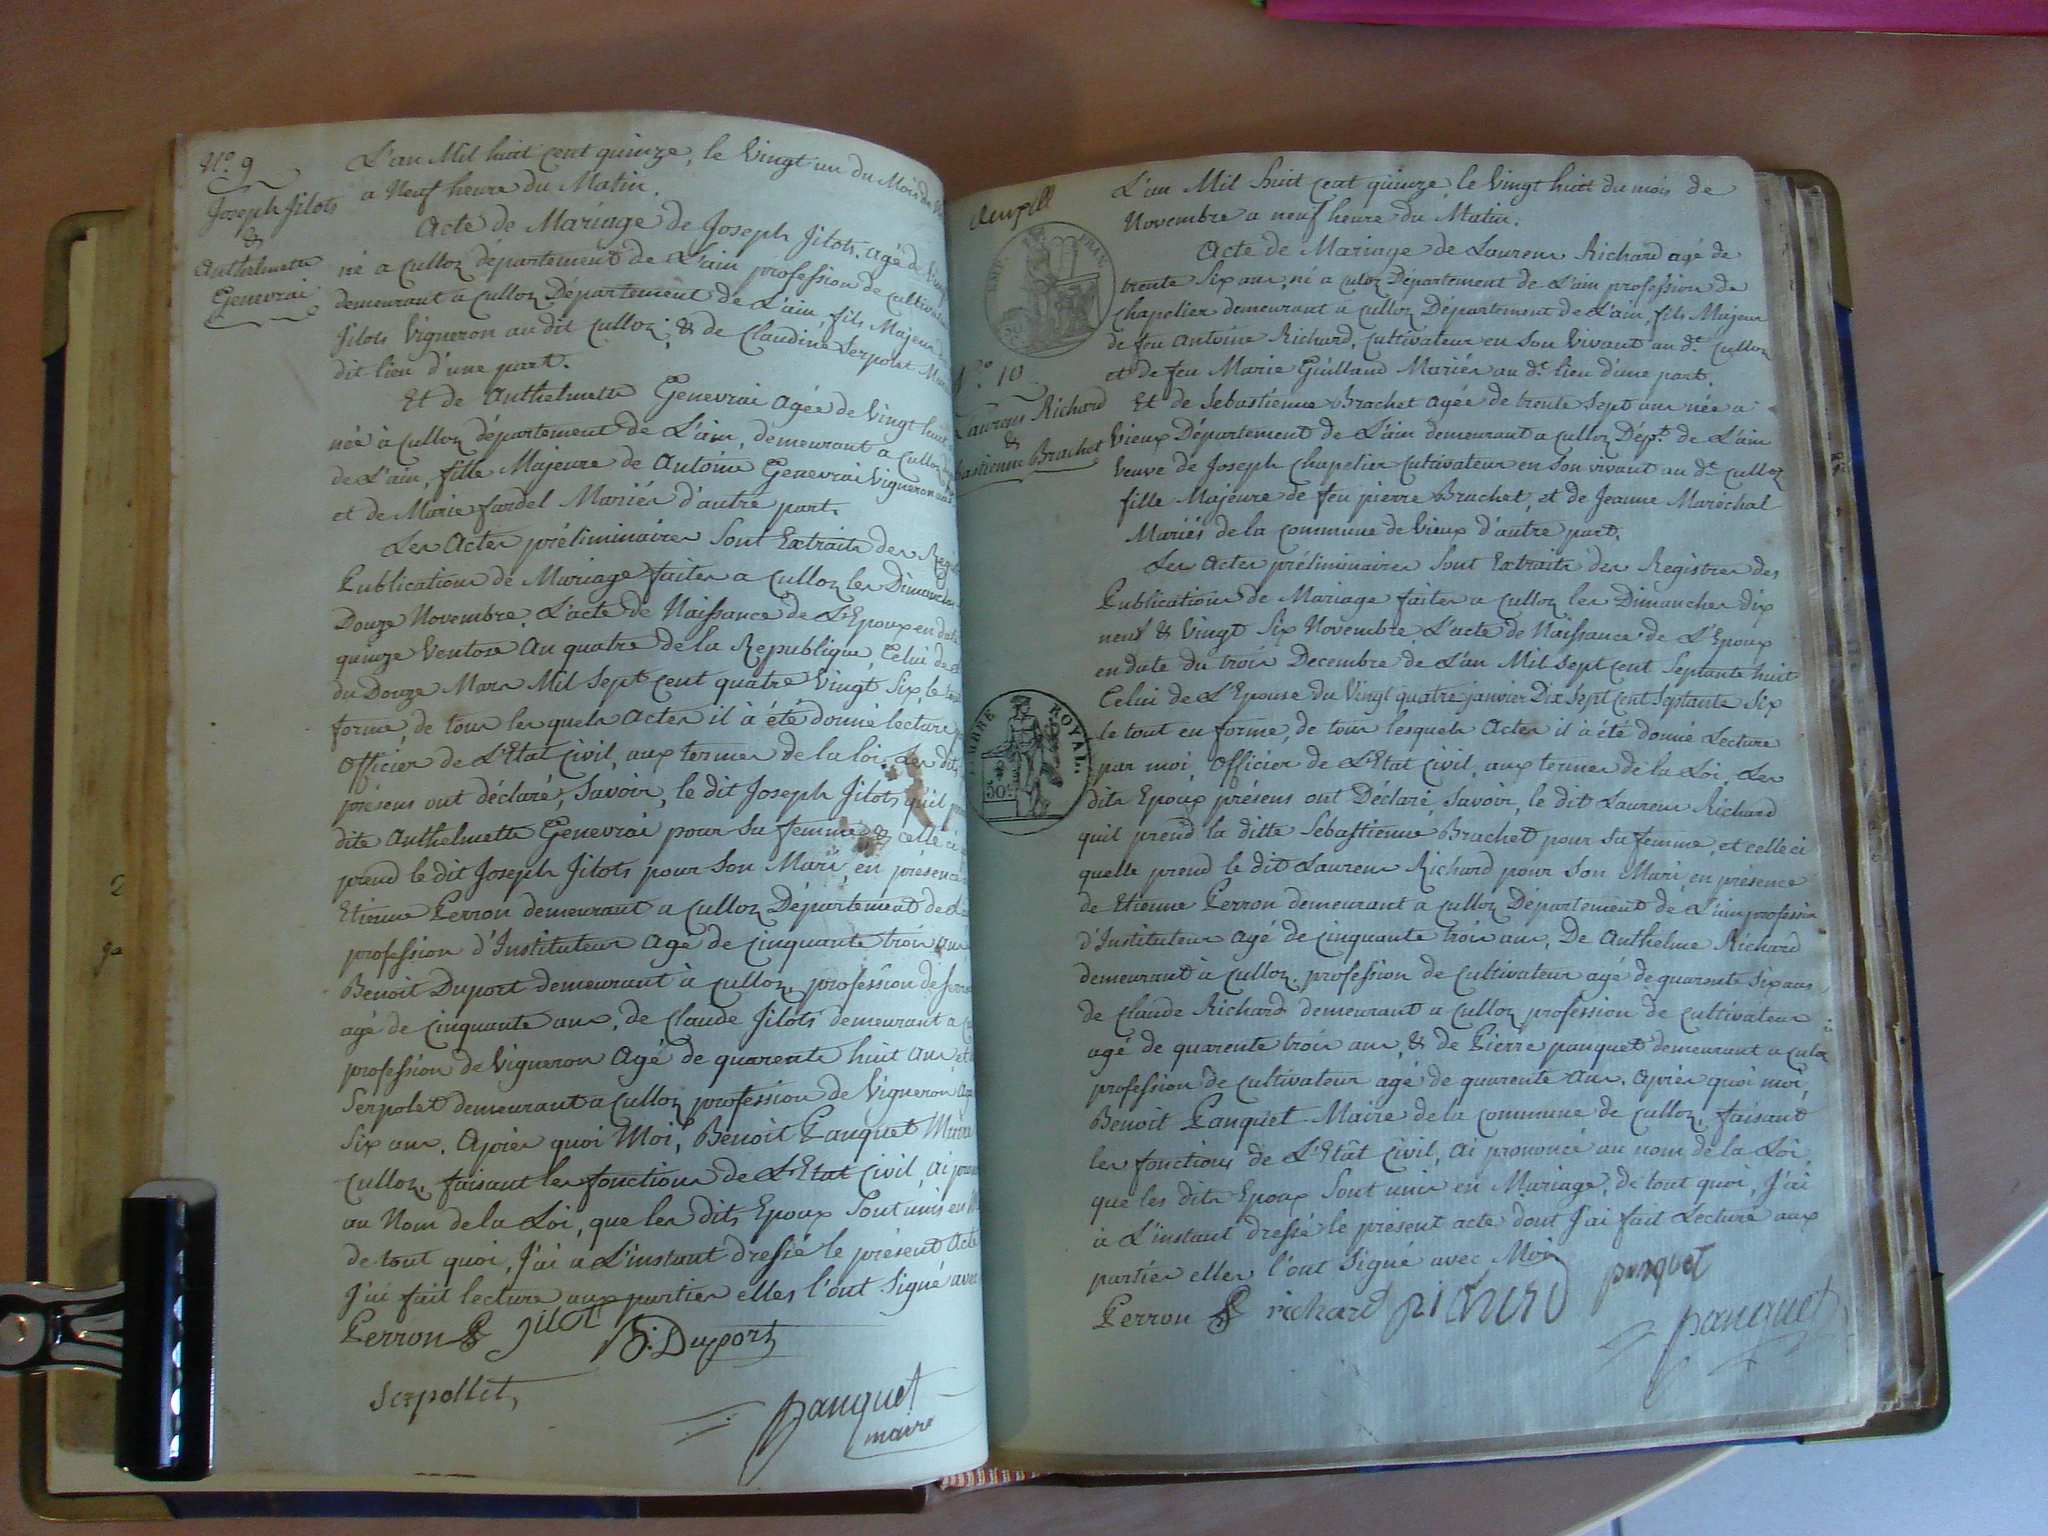 N.o 9
Joseph Jilots
&
Anthelmette
Genevrai
L'an Mil huit cent quinze, le Vingt un du Mois de
a Neuf heure du Matin.
Acte de Mariage de Joseph Jilots, agé de
né a Culloz département de L'ain profession de
demeurant a Culloz Département de L'ain, fils Majeur
Jilots Vigneron au dit Culloz, & de Claudine Serpolet
dit lieu d'une part.
Et de Anthelmette Genevrai Agée de Vingt huit
née à Culloz département de L'ain, demeurant a Culloz
de L'ain, fille Majeure de Antoine Genevrai Vigneron
et de Marie fardel Mariés d'autre part.
Les Actes préliminaires Sont Extraits des
Publications de Mariage faites a Culloz les Dimanches
Douze Novembre. L'acte de Naissance de L'Epoux en date
quinze Ventose An quatre de la Republique, Celui de
du Douze Mars Mil Sept cent quatre Vingt Six, le tout
forme, de tous les quels Actes il à été donné lecture
Officier de L'Etat Civil, aux termes de la loi. Les dits
présens ont déclaré, Savoir, le dit Joseph Jilots qu'il
dite Anthelmette Genevrai pour Sa femme & celle ci
prend le dit Joseph Jilots pour Son Mari, en présence
Etienne Perron demeurant a Culloz Département de
profession d'Instituteur Agé de Cinquante trois ans
Benoit Duport demeurant à Culloz, profession de
agé de Cinquante ans, de Claude Jilots demeurant a
profession de Vigneron Agé de quarente huit Ans et
Serpolet demeurant a Culloz profession de Vigneron
Six ans. Après quoi Moi, Benoit Panquet Maire
Culloz, faisant les fonctions de L'Etat Civil, ai
au Nom de la Loi, que les dits Epoux Sont unis en
de tout quoi, J'ai a L'instant dressé le présent Acte
J'ai fait lecture aux parties elles l'ont Signé avec
Perron jilot B. Duport
Serpollet
panquet
maire
EMP. FRAN.
N.o 10
Laurens Richard
&
bastienne Brachet
TIMBRE ROYAL.
50.
L'an Mil huit Cent quinze, le Vingt huit du mois de
Novembre a neuf heure du Matin.
Acte de Mariage de Laurens Richard agé de
trente Six ans, né a Culoz Département de L'ain profession de
Chapelier demeurant a Culloz Département de L'ain, fils Majeur
de feu Antoine Richard, Cultivateur en Son Vivant au d.t Culloz
et de feu Marie Guilland Mariés au d.t lieu d'une part.
Et de Sebastiénne Brachet Agée de trente Sept ans née a
Vieux Département de L'ain demeurant a Culloz Dép.t de L'ain
Veuve de Joseph Chapelier Cultivateur en Son vivant au d.t Culloz
fille Majeure de feu pierre Brachet, et de Jeanne Maréchal
Mariés de la commune de Vieux d'autre part.
Les Actes préliminaires Sont Extraits des Registres des
Publications de Mariage faites a Culloz les Dimanches dix
neuf & Vingt Six Novembre L'acte de Naissance de L'Epoux
en date du trois Decembre de L'an Mil Sept cent Septante huit
Celui de L'Epouse du Vingt quatre janvier Dix Sept Cent Septante Six
le tout en forme, de tous lesquels Actes il à été donné Lecture
par moi, Officier de L'Etat Civil, aux termes de la Loi, Les
dits Epoux présens ont Déclaré, Savoir, le dit Laurens Richard
quil prend la ditte Sebastienne Brachet pour Sa femme, et celle ci
quelle prend le dit Laurens Richard pour Son Mari, en présence
de Etienne Perron demeurant a Culloz Département de L'ain profession
d'Instituteur Agé de Cinquante trois ans, De Anthelme Richard
demeurant à Culloz, profession de Cultivateur agé de quarente Six ans
de Claude Richard demeurant a Culloz profession de Cultivateur
agé de quarente trois ans, & de Pierre panquet demeurant a Culoz
profession de Cultivateur agé de quarente ans. Après quoi moi,
Benoit Panquet Maire de la Commune de Culloz, faisant
les fonctions de L'Etât Civil, ai prononcé au nom de la Loi
que les dits Epoux Sont unis en Mariage, de tout quoi, J'ai
a L'instant dressé le présent acte dont J'ai fait Lecture aux
parties elles l'ont Signé avec Moi
Perron richard richard panquet
panquet